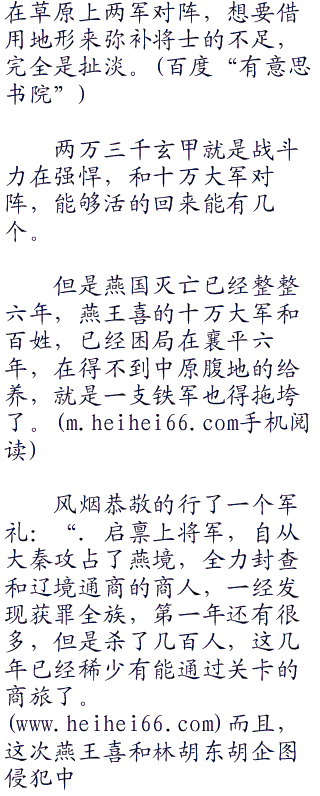 在草原上两军对阵，想要借
用地形来弥补将士的不足，
完全是扯淡。(百度“有意思
书院”)
两万三千玄甲就是战斗
力在强悍，和十万大军对
阵，能够活的回来能有几
个。
但是燕国灭亡已经整整
六年，燕王喜的十万大军和
百姓，已经困局在襄平六
年，在得不到中原腹地的给
养，就是一支铁军也得拖垮
了。(m.heihei66.com手机阅
读)
风烟恭敬的行了一个军
礼：“．启禀上将军，自从
大秦攻占了燕境，全力封查
和辽境通商的商人，一经发
现获罪全族，第一年还有很
多，但是杀了几百人，这几
年已经稀少有能通过关卡的
商旅了。
(www.heihei66.com)而且，
这次燕王喜和林胡东胡企图
侵犯中